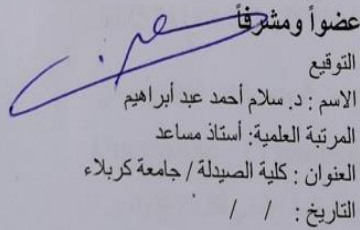 عضواً ومشرفاً
التوقيع
الاسم : د. سلام أحمد عبد أبراهيم
المرتبة العلمية: أستاذ مساعد
العنوان : كلية الصيدلة / جامعة كربلاء
التاريخ : / /